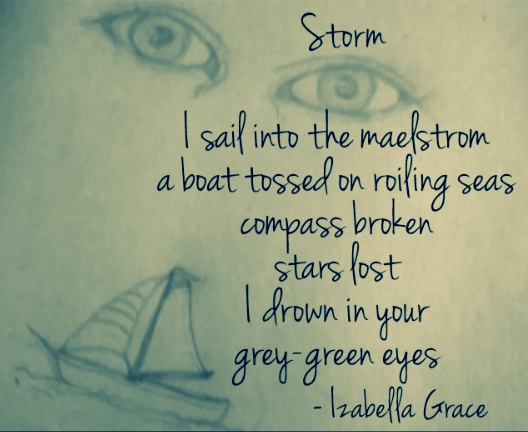 Storm
I sail into the maelstrom
a boat tossed on roiling seas
compass broken
stars lost
I drown in your
grey-green eyes
- Izabella Grace